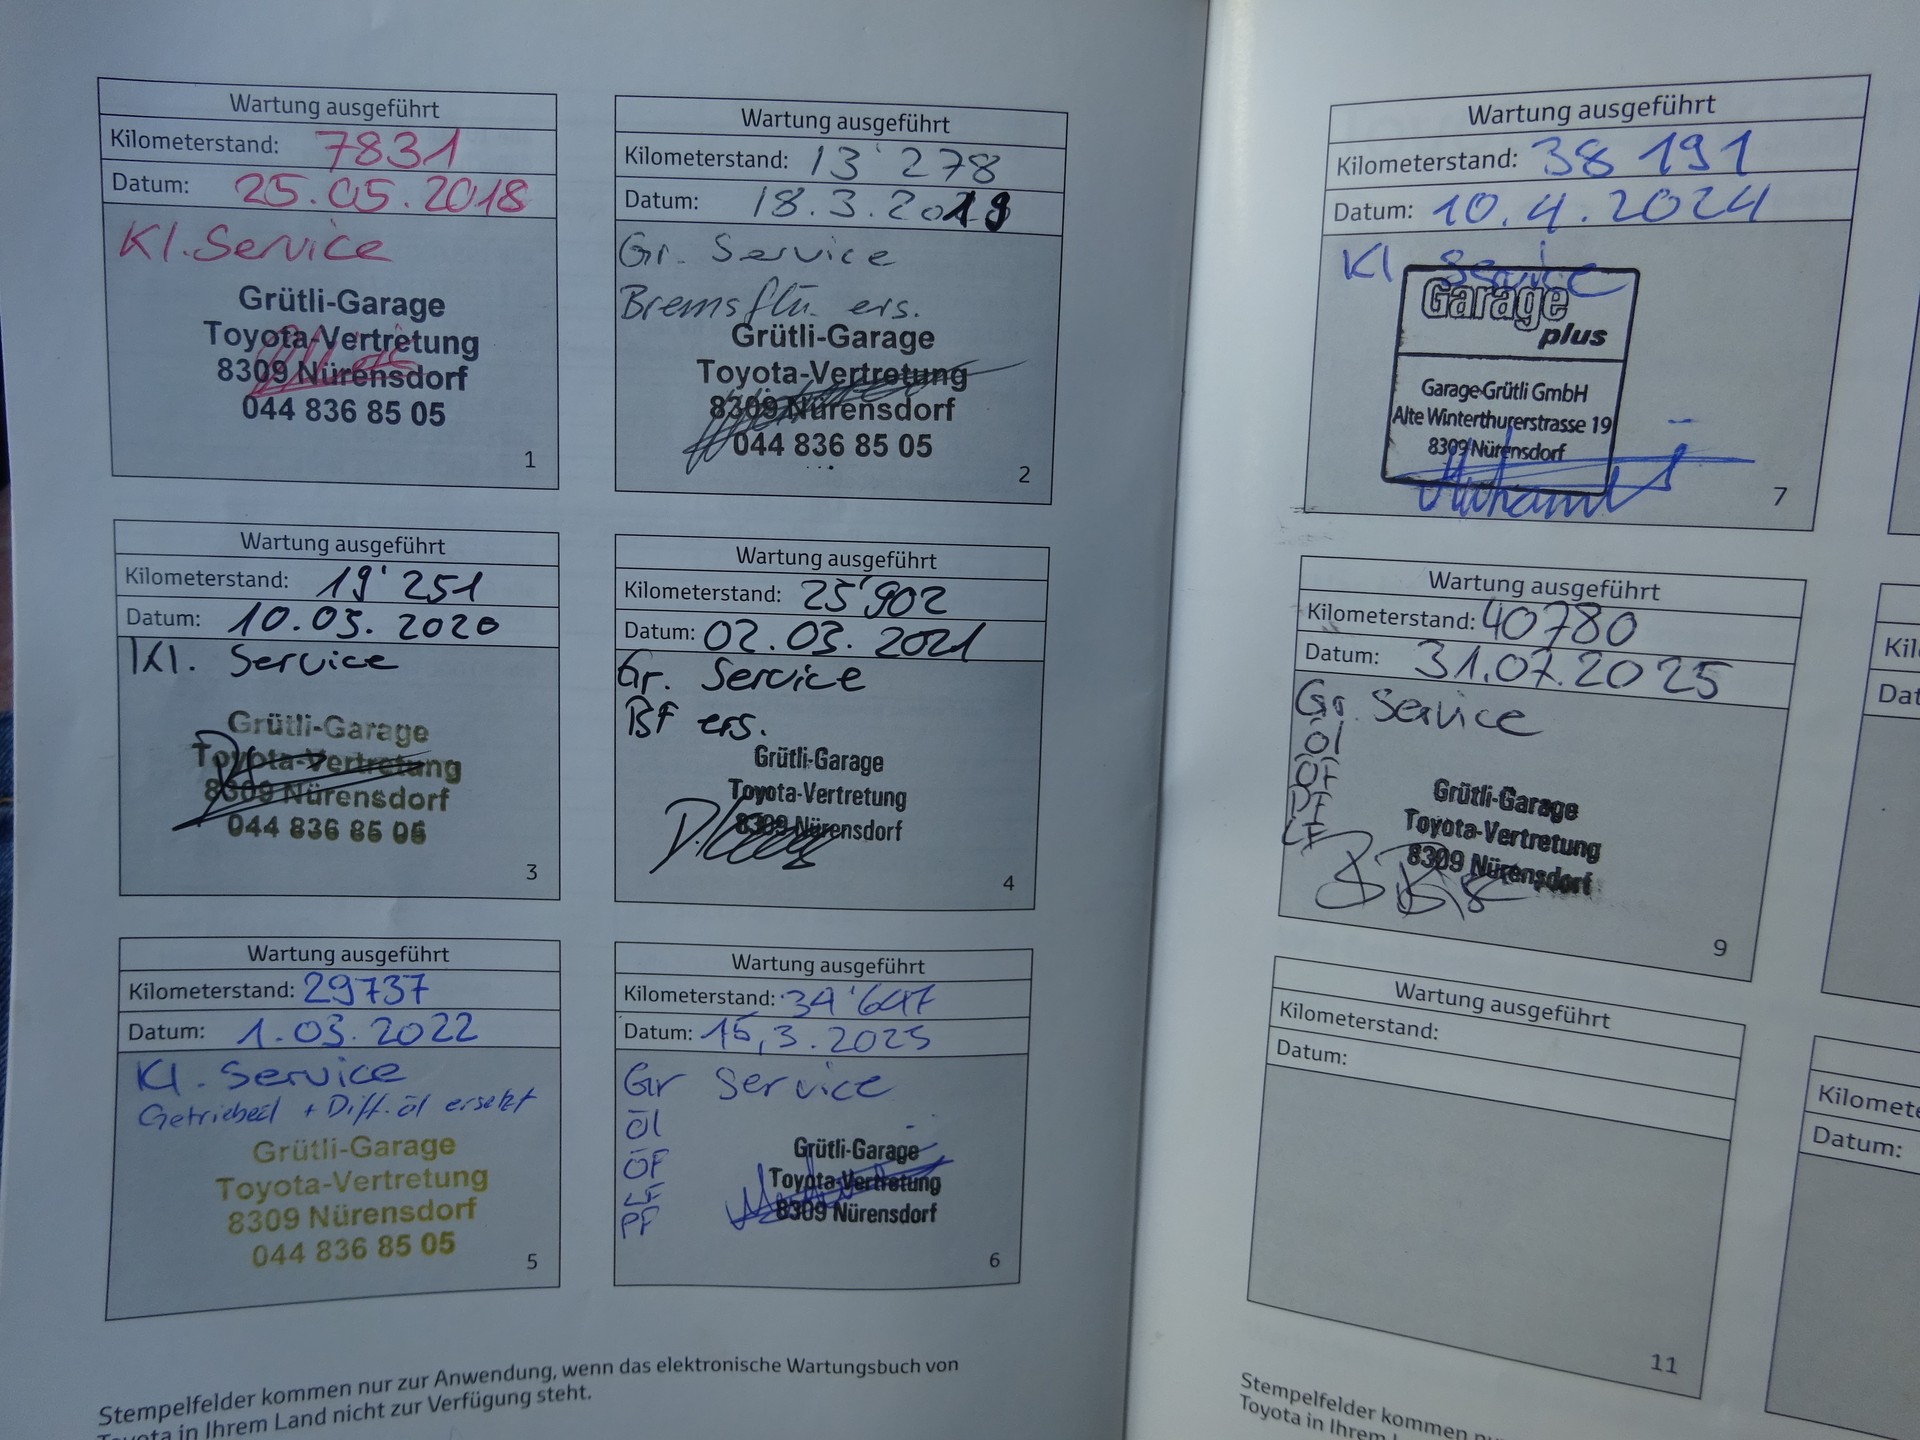 Wartung ausgeführt
Kilometerstand: 7831
Datum: 25.05.2018
Kl. Service
Grütli-Garage
Toyota-Vertretung
8309 Nürensdorf
044 836 85 05
1
Wartung ausgeführt
Kilometerstand: 13'278
Datum: 18.3.2019
Gr. Service
Bremsflü. ers.
Grütli-Garage
Toyota-Vertretung
8309 Nürensdorf
044 836 85 05
2
Wartung ausgeführt
Kilometerstand: 19'251
Datum: 10.03.2020
Kl. Service
Grütli-Garage
Toyota-Vertretung
8309 Nürensdorf
044 836 85 05
3
Wartung ausgeführt
Kilometerstand: 25'902
Datum: 02.03.2021
Gr. Service
BF ers.
Grütli-Garage
Toyota-Vertretung
8309 Nürensdorf
4
Wartung ausgeführt
Kilometerstand: 29737
Datum: 1.03.2022
Kl. Service
Getriebeöl + Diff.öl ersetzt
Grütli-Garage
Toyota-Vertretung
8309 Nürensdorf
044 836 85 05
5
Wartung ausgeführt
Kilometerstand: 34'647
Datum: 15.3.2023
Gr Service
Öl
ÖF
LF
PF
Grütli-Garage
Toyota-Vertretung
8309 Nürensdorf
6
Stempelfelder kommen nur zur Anwendung, wenn das elektronische Wartungsbuch von
Toyota in Ihrem Land nicht zur Verfügung steht.
Wartung ausgeführt
Kilometerstand: 38 191
Datum: 10.4.2024
Kl Service
Garage
plus
Garage-Grütli GmbH
Alte Winterthurerstrasse 19
8309 Nürensdorf
7
Wartung ausgeführt
Kilometerstand: 40780
Datum: 31.07.2025
Gr. Service
Öl
ÖF
PF
LF
Grütli-Garage
Toyota-Vertretung
8309 Nürensdorf
9
Wartung ausgeführt
Kilometerstand:
Datum:
11
Stempelfelder kommen
Toyota in Ihrem
Kil
Dat
Kilomete
Datum: